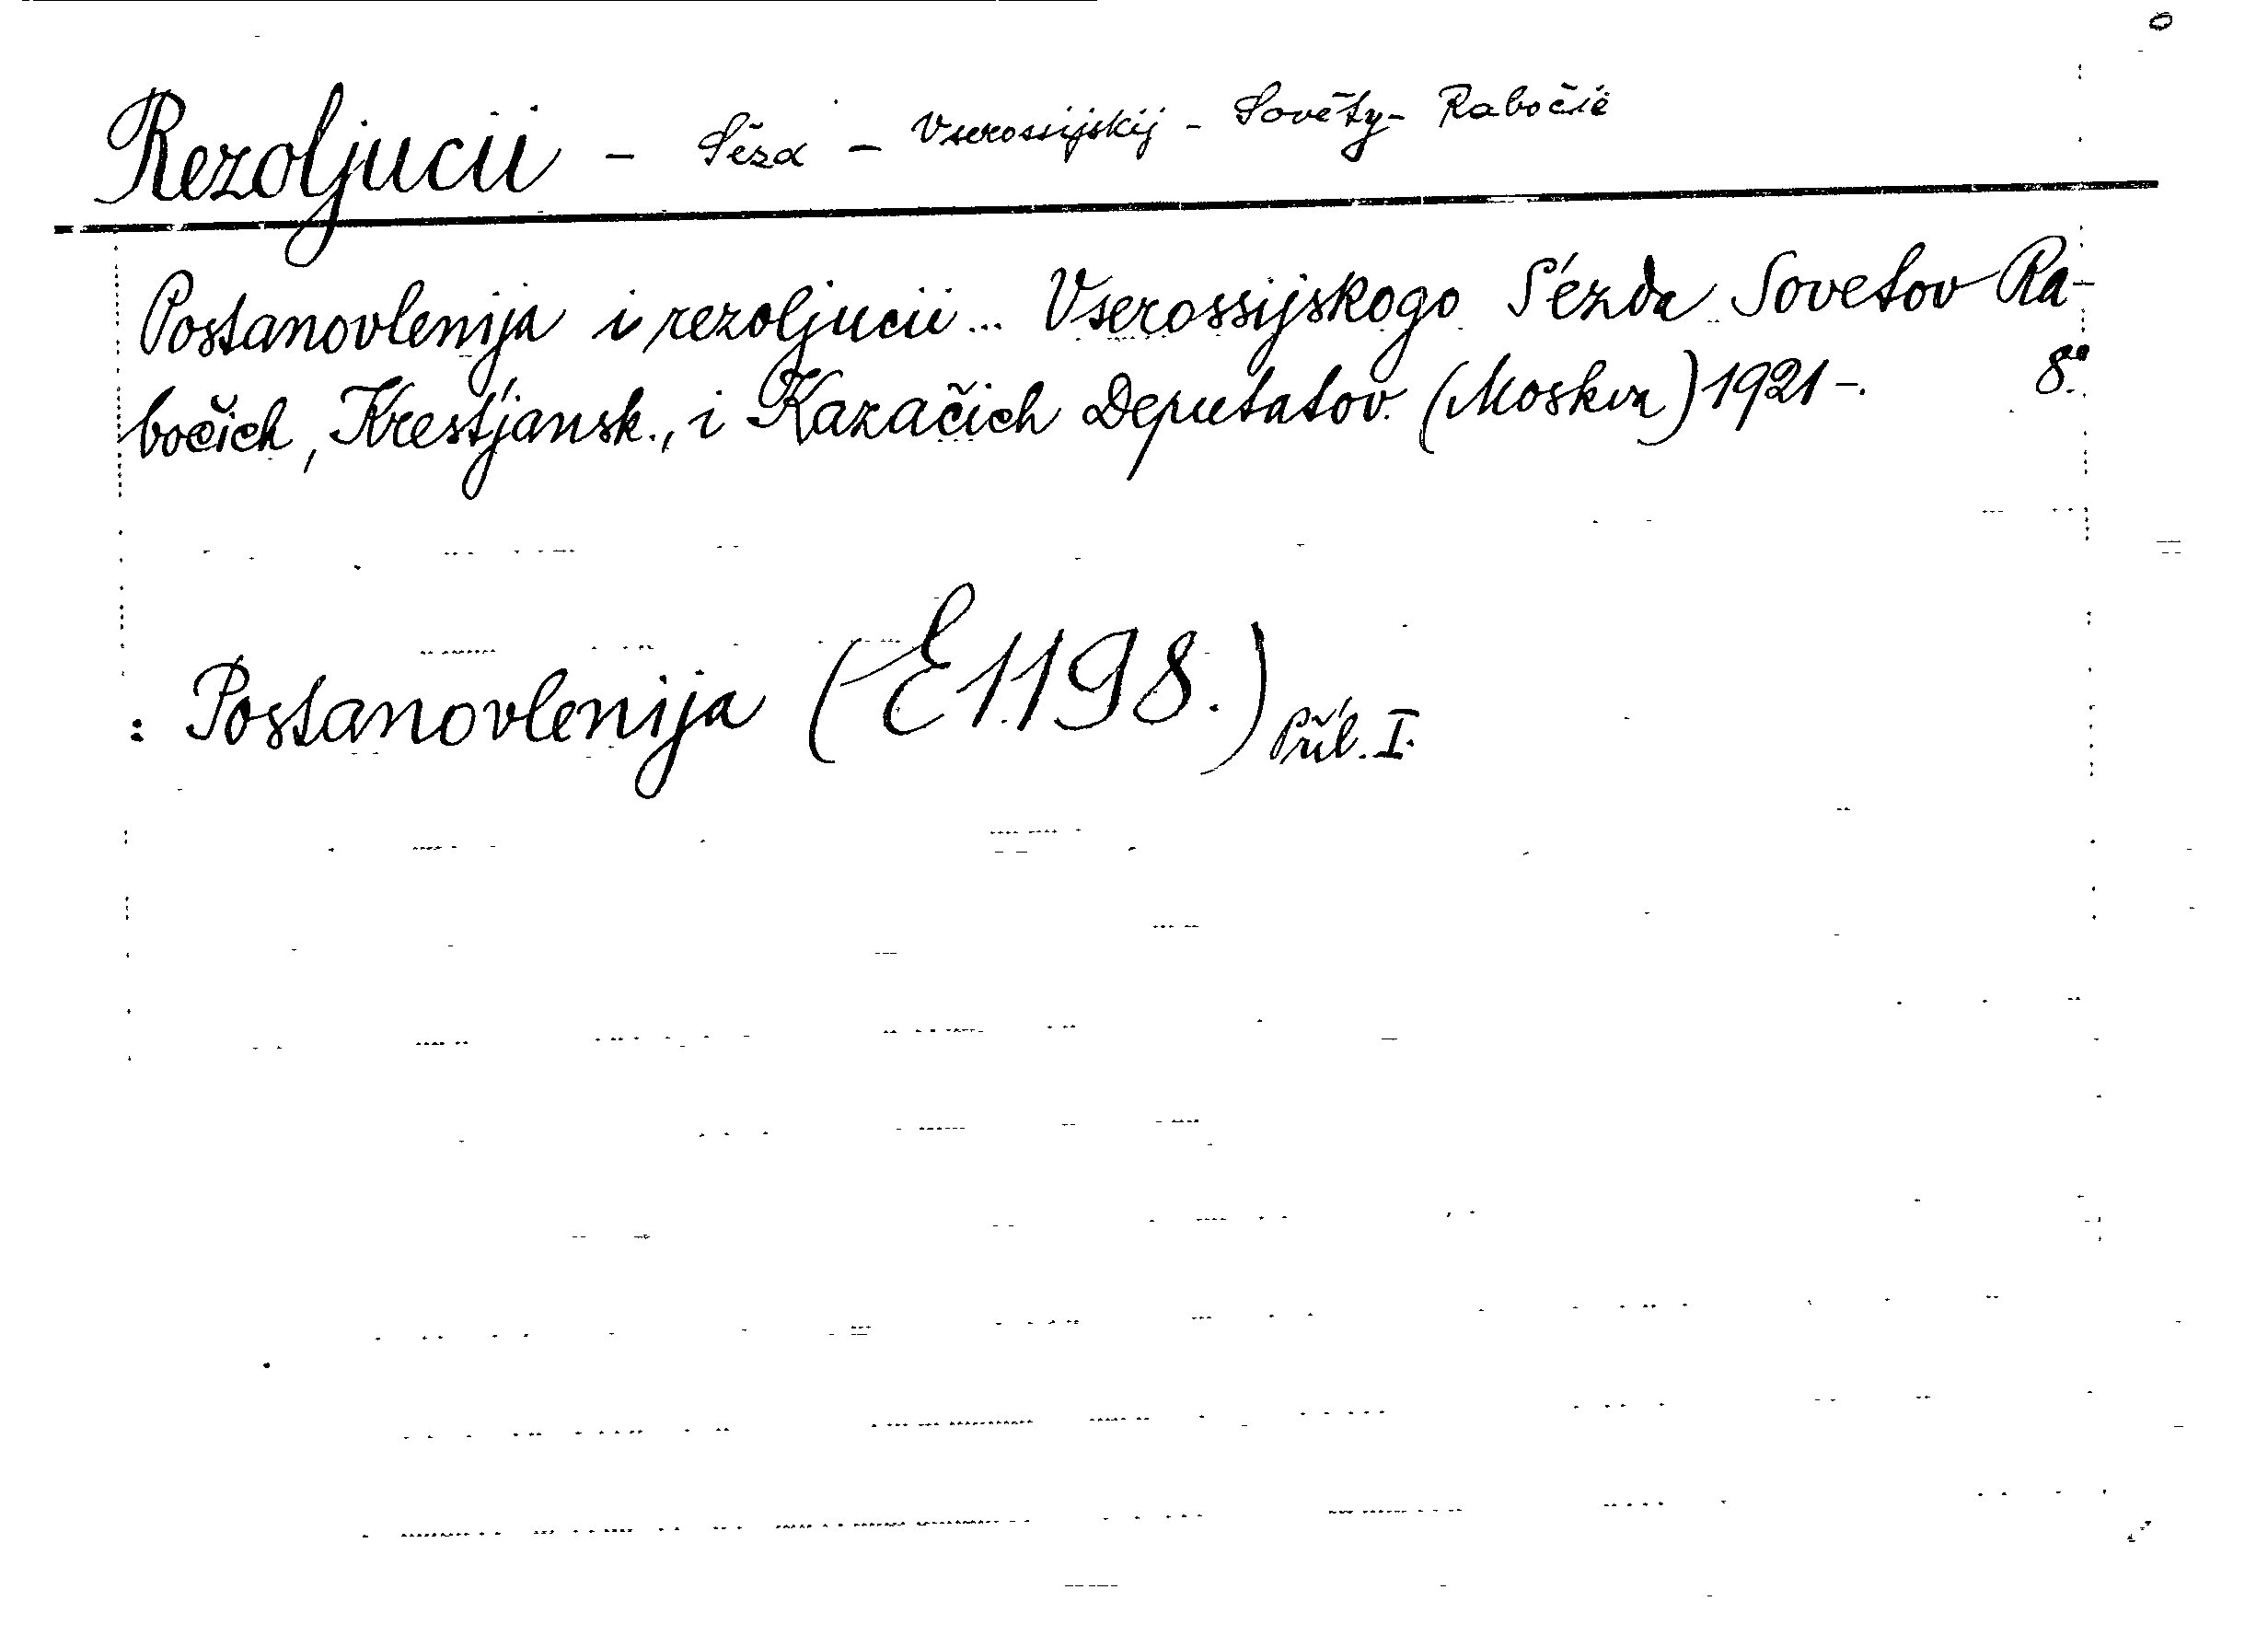 Rezoljucii - Sězd - Vserossijskij - Sověty - Rabočie
Postanovlenija i rezoljucii... Vserossijskogo S'ézda Sovetov Ra-
bočich, Krest'jansk., i Kazačich Deputatov. (Moskva) 1921-. 8°.
: Postanovlenija (E 1198.) Příl. I.